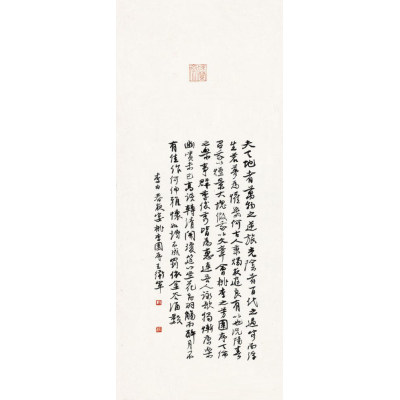 夫天地者萬物之逆旅光陰者百代之過客而浮
生若夢為懽幾何古人秉燭夜遊良有以也況陽春
召我以煙景大塊假我以文章會桃李之芳園序天倫
之樂事群季俊秀皆為惠連吾人詠歌獨慚康樂
幽賞未已高談轉清開瓊筵以坐花飛羽觴而醉月不
有佳作何伸雅懷如詩不成罰依金谷酒數
李白春夜宴桃李園序王軍